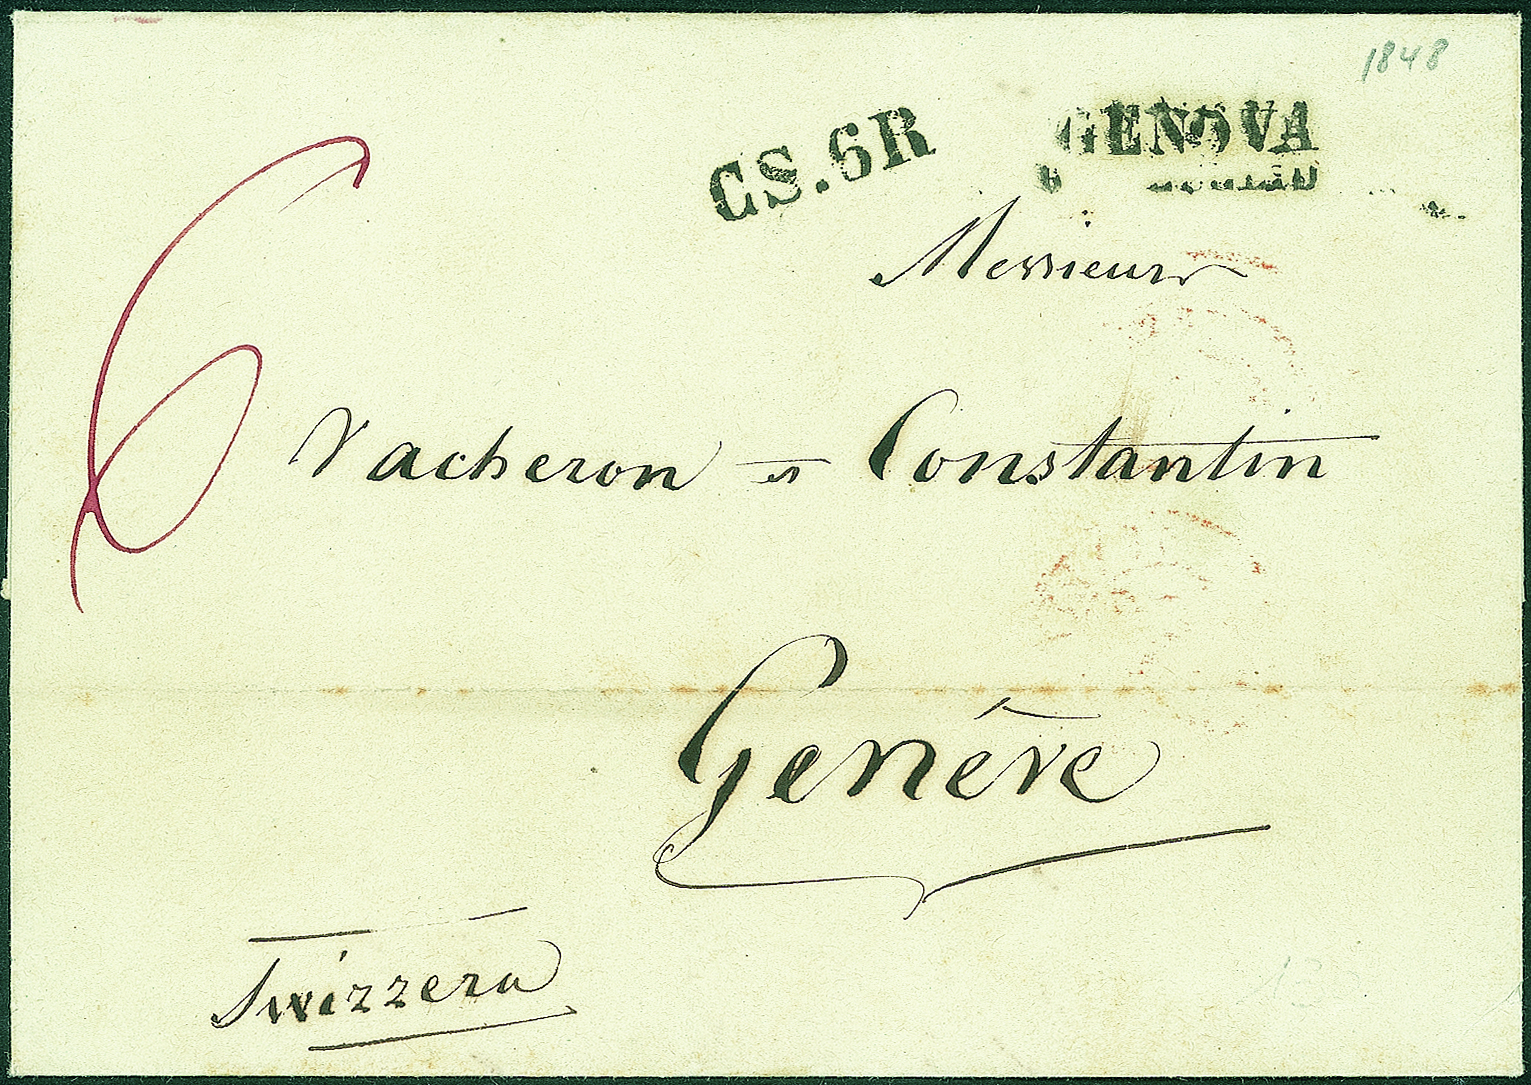 1848
CS.6R
GENOVA
Messieurs
6
Vacheron et Constantin
Genève
Swizzera